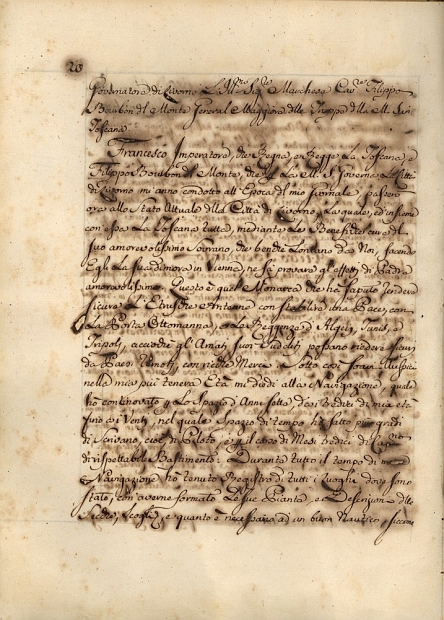 20
Governatore di Livorno L'Ill.mo Sig.re Marchese Cav.re Filippo
Bourbon del Monte General Maggiore delle Truppe della M. Sua in
Toscana
Francesco Imperatore, che Regna, e Regge la Toscana, e
Filippo Bourbon del Monte, che la M. S. Governa la Città
di Livorno mi anno condotto all'Epoca del mio giornale, passerò
ora allo Stato Attuale della Città di Livorno, la quale, ed insieme
con essa la Toscana tutta, mediante le Benefiche cure del
suo amorevolissimo Sovrano, che benche Lontano da Noi, facendo
Egli la sua dimora in Vienna, ne fà provare gl'effetti di Padre
amorosissimo. Questo è quel Monarca che hà saputo rendere
sicure l'Etrusche Antenne con stabilire una Pace, con
la Porta Ottomanna, e la Reggenza di Algeri, Tunis, e
Tripoli, accioche gl'Amati suoi Sudditi possano riedere sicuri
da Paesi Remoti, con ricche Merci. Sotto così fausti Auspici
nella mia più tenera Età mi diedi alla Navigazione, quale
hò continovato lo Spazio d'Anni sette da tredici di mia età
fino à i Venti, nel quale Spazio di tempo hò fatto più gradi
di Scrivano, cioè, di Piloto, e il corso di Mesi tredici di Cap.no
di rispettabile Bastimento: Durante tutto il tempo di mia
Navigazione hò tenuto Registro di tutti i Luoghi dove sono
stato, con averne formato le sue Piante, e Descrizioni delle
Secche, Scogli, e quanto è necessario ad un buon Nautico, siccome